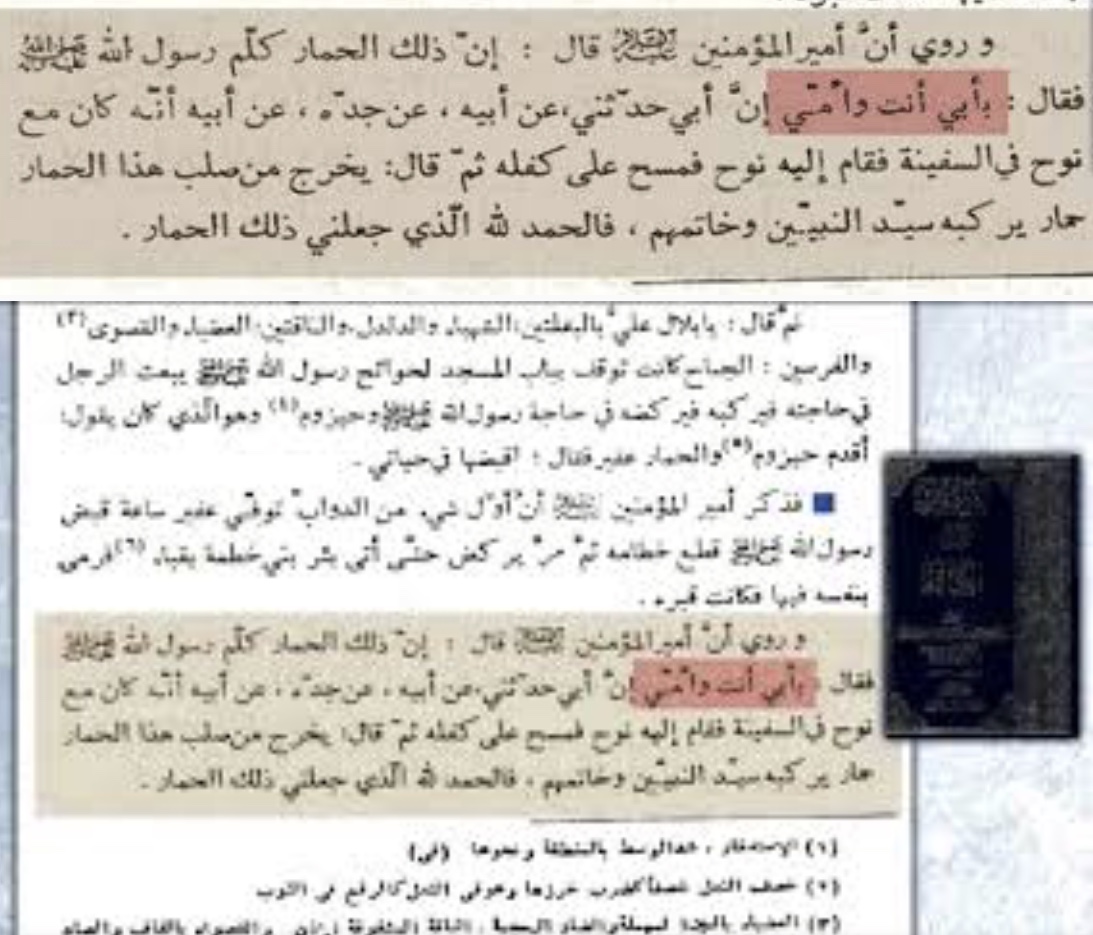 و روي أنَّ أمير المؤمنين عليه السلام قال : إنّ ذلك الحمار كلّم رسول الله صلى الله عليه وآله
فقال : بأبي أنت واُمّي إنَّ أبي حدّثني، عن أبيه ، عن جدّه ، عن أبيه أنّه كان مع
نوح في السفينة فقام إليه نوح فمسح على كفله ثمّ قال: يخرج من صلب هذا الحمار
حمار يركبه سيّد النبيّين وخاتمهم ، فالحمد لله الّذي جعلني ذلك الحمار .
ثمّ قال : يا بلال عليَّ بالبغلتين: الشهباء والدلدل، والناقتين: العضباء والقصوى (٣)
والفرسين : الجناح كانت توقف بباب المسجد لحوائج رسول الله صلى الله عليه وآله يبعث الرجل
في حاجته فيركبه فيركضه في حاجة رسول الله صلى الله عليه وآله وحيزوم (٤) وهو الّذي كان يقول:
أقدم حيزوم (٥) والحمار عفير فقال : اقبضها في حياتي .
فذكر أمير المؤمنين عليه السلام أنّ أوّل شيء من الدوابّ توفّي عفير ساعة قبض
رسول الله صلى الله عليه وآله قطع خطامه ثمّ مرّ يركض حتّى أتى بئر بني خطمة بقباء (٦) فرمى
بنفسه فيها فكانت قبره .
و روي أنَّ أمير المؤمنين عليه السلام قال : إنّ ذلك الحمار كلّم رسول الله صلى الله عليه وآله
فقال : بأبي أنت واُمّي إنَّ أبي حدّثني، عن أبيه ، عن جدّه ، عن أبيه أنّه كان مع
نوح في السفينة فقام إليه نوح فمسح على كفله ثمّ قال: يخرج من صلب هذا الحمار
حمار يركبه سيّد النبيّين وخاتمهم ، فالحمد لله الّذي جعلني ذلك الحمار .
(١) الوسط بالمنطقة ونحوها (في)
(٢) خصف النعل خصفاً كضرب خرزها وهو في النعل كالرقع في الثوب
(٣) العضباء